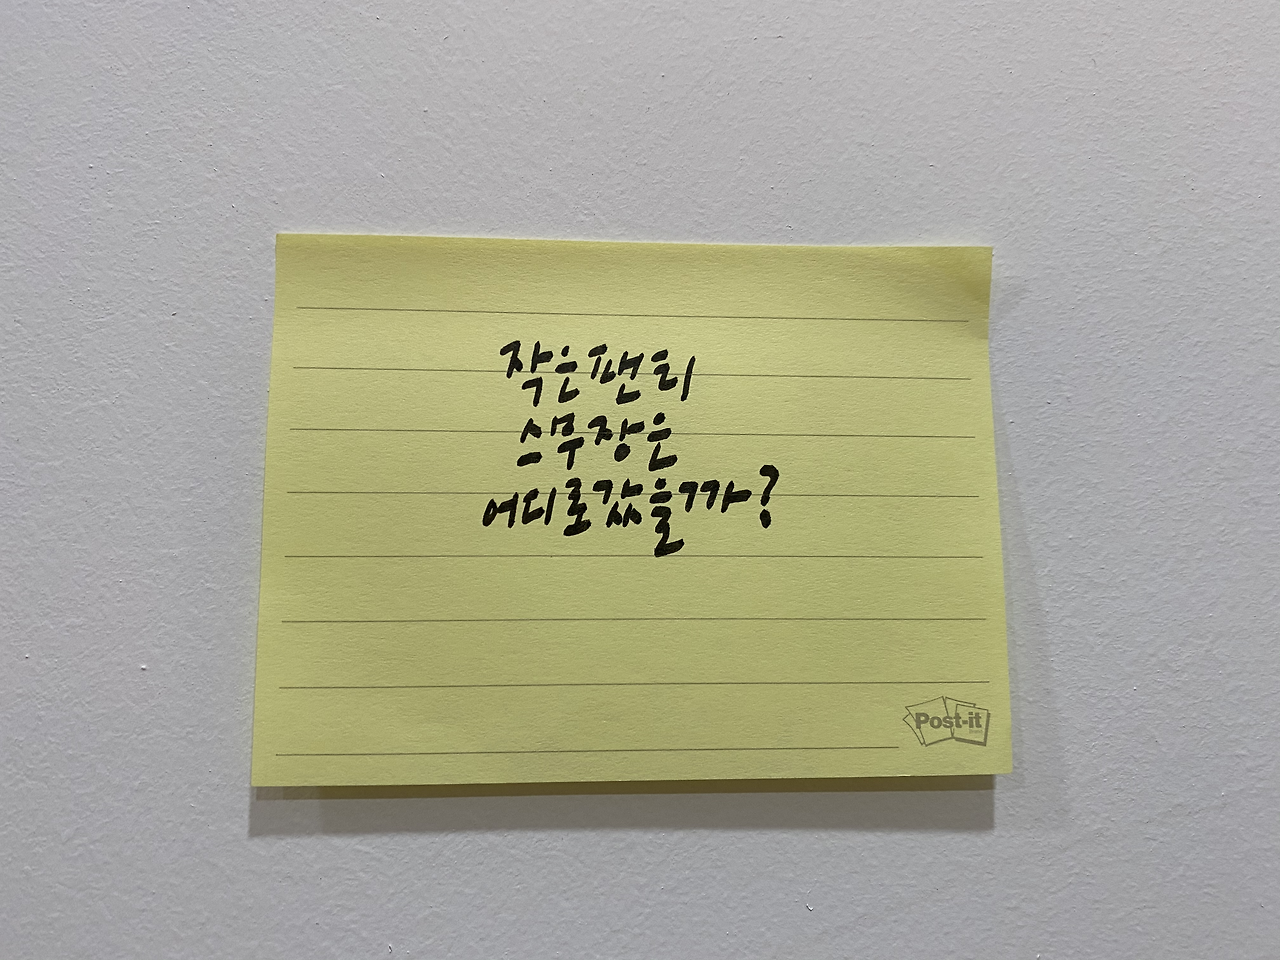 작은팬티
스무장은
어디로갔을까?
Post-it